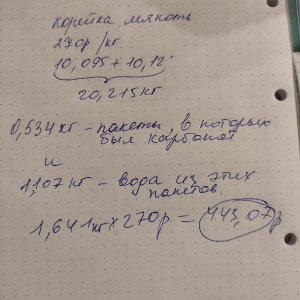 корейка мякоть
270р/кг.
10,095 + 10,12.
20,215кг
0,534кг - пакеты, в которых
был карбонат
и
1,107кг - вода из этих
пакетов.
1,641кг х 270р = 443,07р